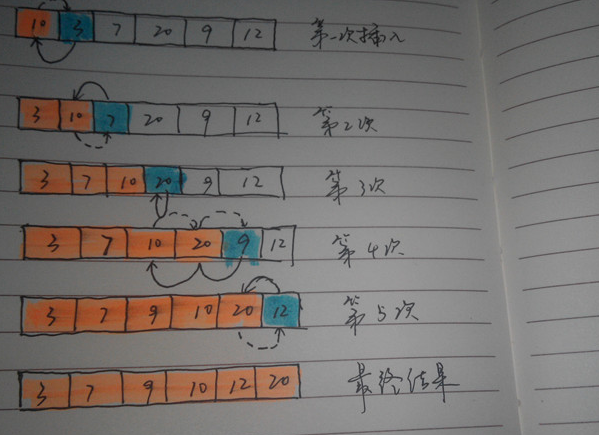 10 3 7 20 9 12 第一次插入
3 10 7 20 9 12 第2次
3 7 10 20 9 12 第3次
3 7 10 20 9 12 第4次
3 7 9 10 20 12 第5次
3 7 9 10 12 20 最终结果